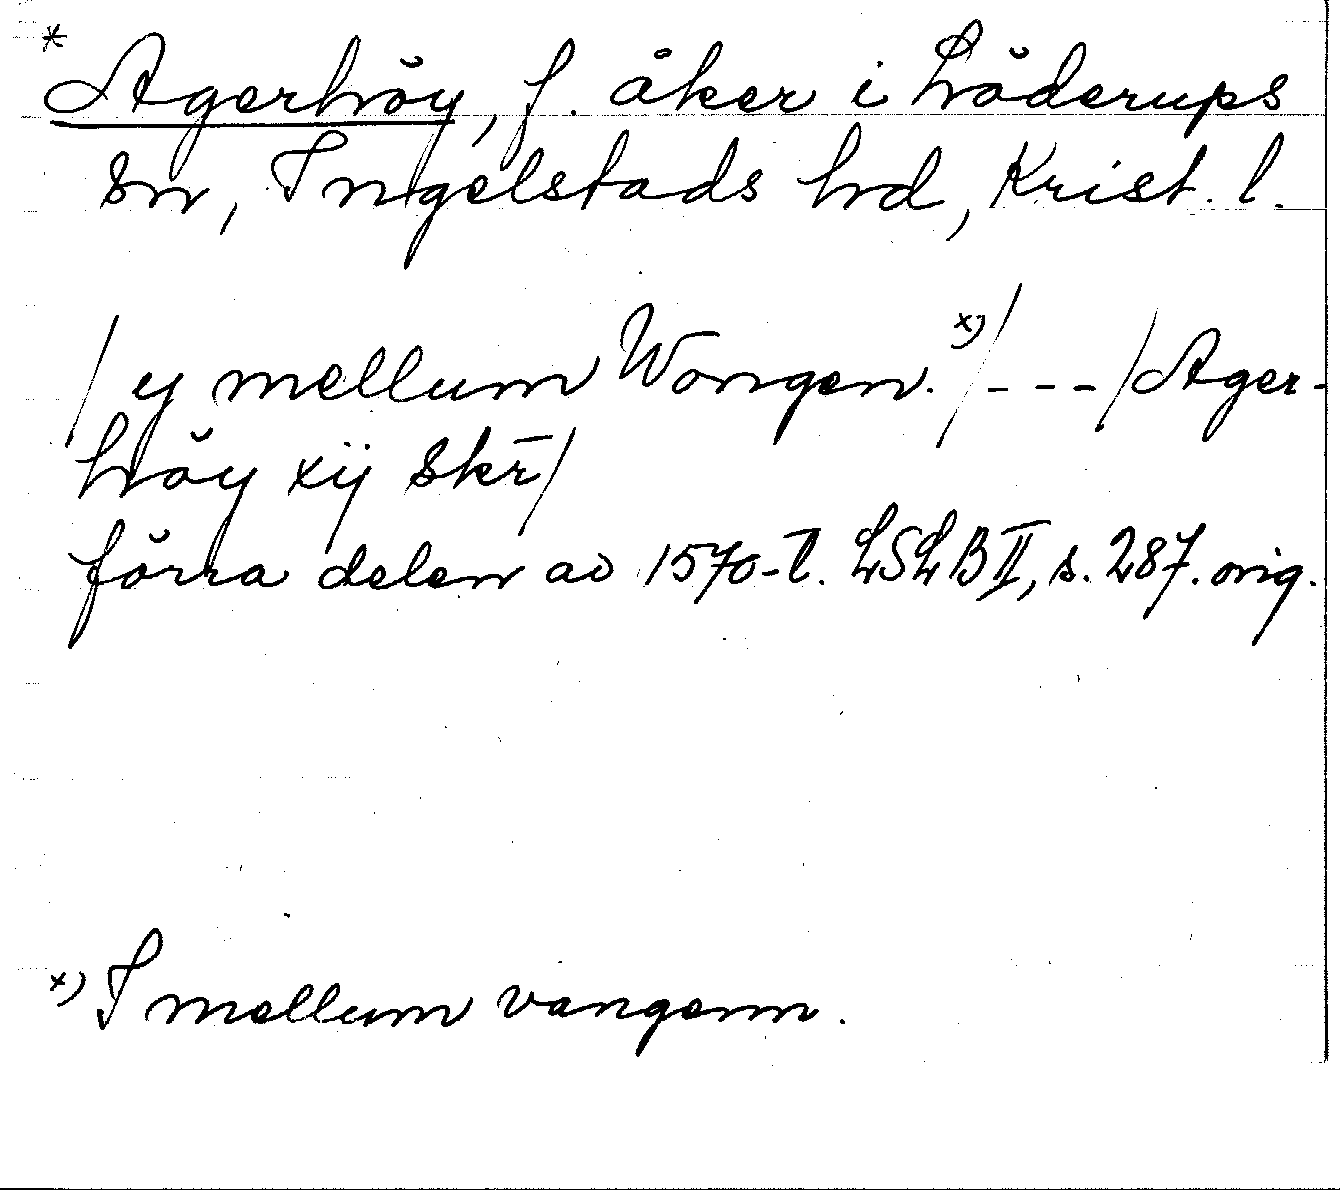 * Agerhöy, f. åker i Löderups
sn, Ingelstads hd, Krist. l.
/ y mellum Wongen. x) / - - - / Ager-
höy xij skr̄ /
förra delen av 1570-t. LSLB II, s. 287. orig.
x) I mellum vangenn.